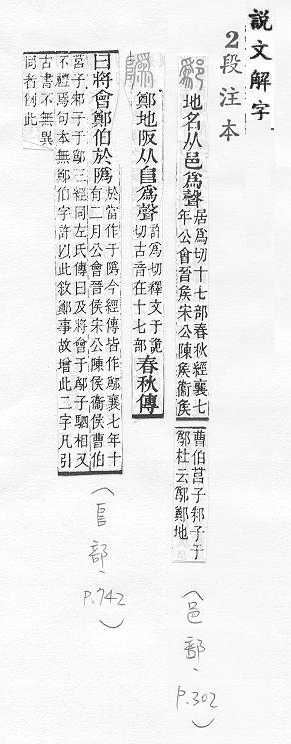 說文解字
2段注本
鄬 地名从邑爲聲 居爲切十七部春秋經襄七
年公會晉矦宋公陳矦衞矦
曹伯莒子邾子于
鄬杜云鄬鄭地
(邑部、P.302)
隖 鄭地阪从𨸏爲聲 許爲切釋文于詭
切古音在十七部 春秋傳
曰將會鄭伯於隖 於當作于隖今經傳皆作鄬襄七年十
有二月公會晉侯宋公陳侯衞侯曹伯
莒子邾子于鄬三經同左氏傳曰及將會于鄬子駟相又
不禮焉句本無鄭伯字許以此敘鄭事故增此二字凡引
古書不無異
同者例此
(𨸏部、P.742)